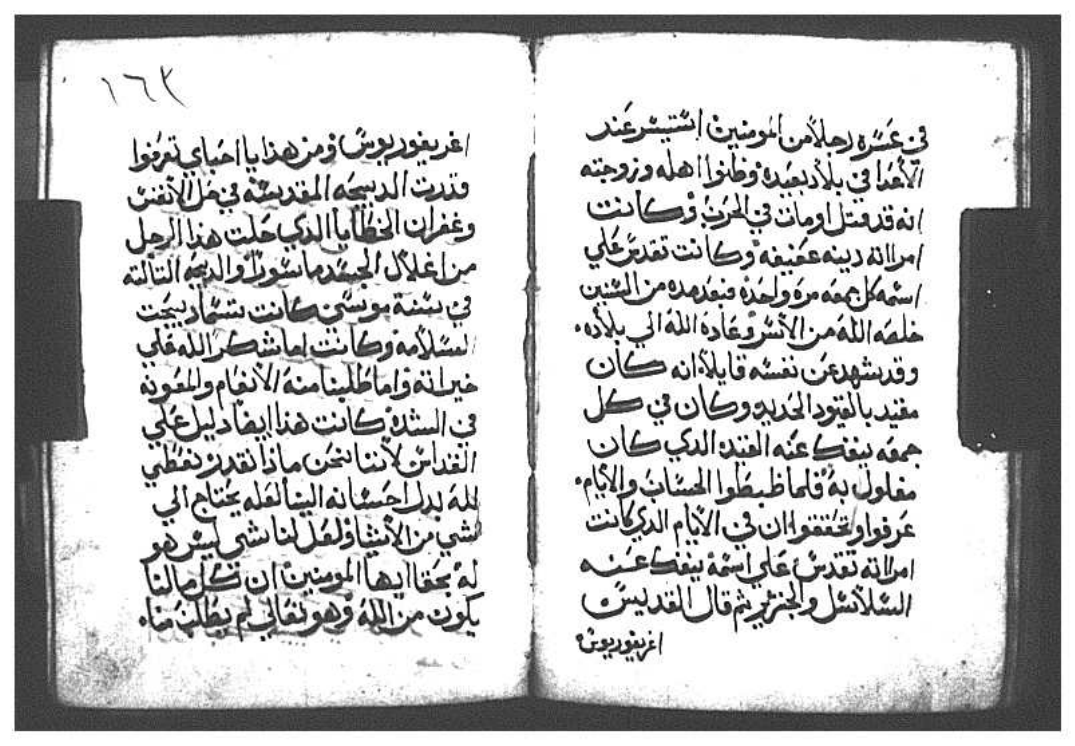 في عسره رجلاً من المومنين استيسر عند
الأعدا في بلاد بعيده وظنوا اهله وزوجته
انه قد قتل او مات في الحرب وكانت
امراته دينه عفيفه وكانت تقدس علي
اسمه كل جمعه مره واحده فبعد مده من السنين
خلصه الله من الأسر وعاده الله الي بلاده
وقد شهد عن نفسه قايلاً انه كان
مقيد بالقيود الحديد وكان في كل
جمعه ينفك عنه القيد الدي كان
مغلول به فلما ظبطوا الحساب والأيام
عرفوا وتحققوا ان في الأيام الدي كانت
امراته تقدس علي اسمه ينفك عنه
السلاسل والجنزير ثم قال القديس
اغريغوريوس
١٦٣
اغريغوريوس ومن هذا يا احباي تعرفوا
قدرت الدبيحه المقدسه في حل الأنفس
وغفران الخطايا الدي حلت هذا الرجل
من اغلال الجسد ماسوراً والدبيحه التالته
في سنة موسي كانت تتسما دبيحت
السلامه وكانت اما شكر الله علي
خيراته واما طلبنا منه الأنعام والمعونه
في الشده كانت هذا ايضاً دليل علي
القداس لأننا نحن ماذا نقدر نعطي
لله بدل احسانه الينا لعله يحتاج الي
شي من الأشيا ولعل لنا شي ليس هو
له بحقا ايها المومنين ان كل مالنا
يكون من الله وهو تعالي لم يطلب منا